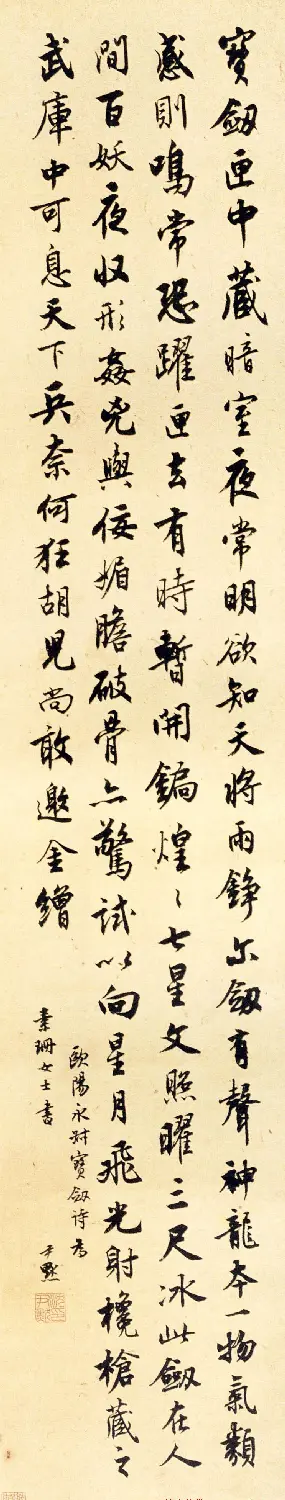 寶劔匣中藏暗室夜常明欲知天將雨錚尓劔有聲神龍本一物氣類
感則鳴常恐躍匣去有時暫開鐍煌〻七星文照曜三尺冰此劔在人
間百妖夜収形姦兇與佞媚膽破骨亦驚試以向星月飛光射欃槍藏之
武庫中可息天下兵奈何狂胡兒尚敢邀金繒
歐陽永叔寶劔诗為
素珊女士書
尹默